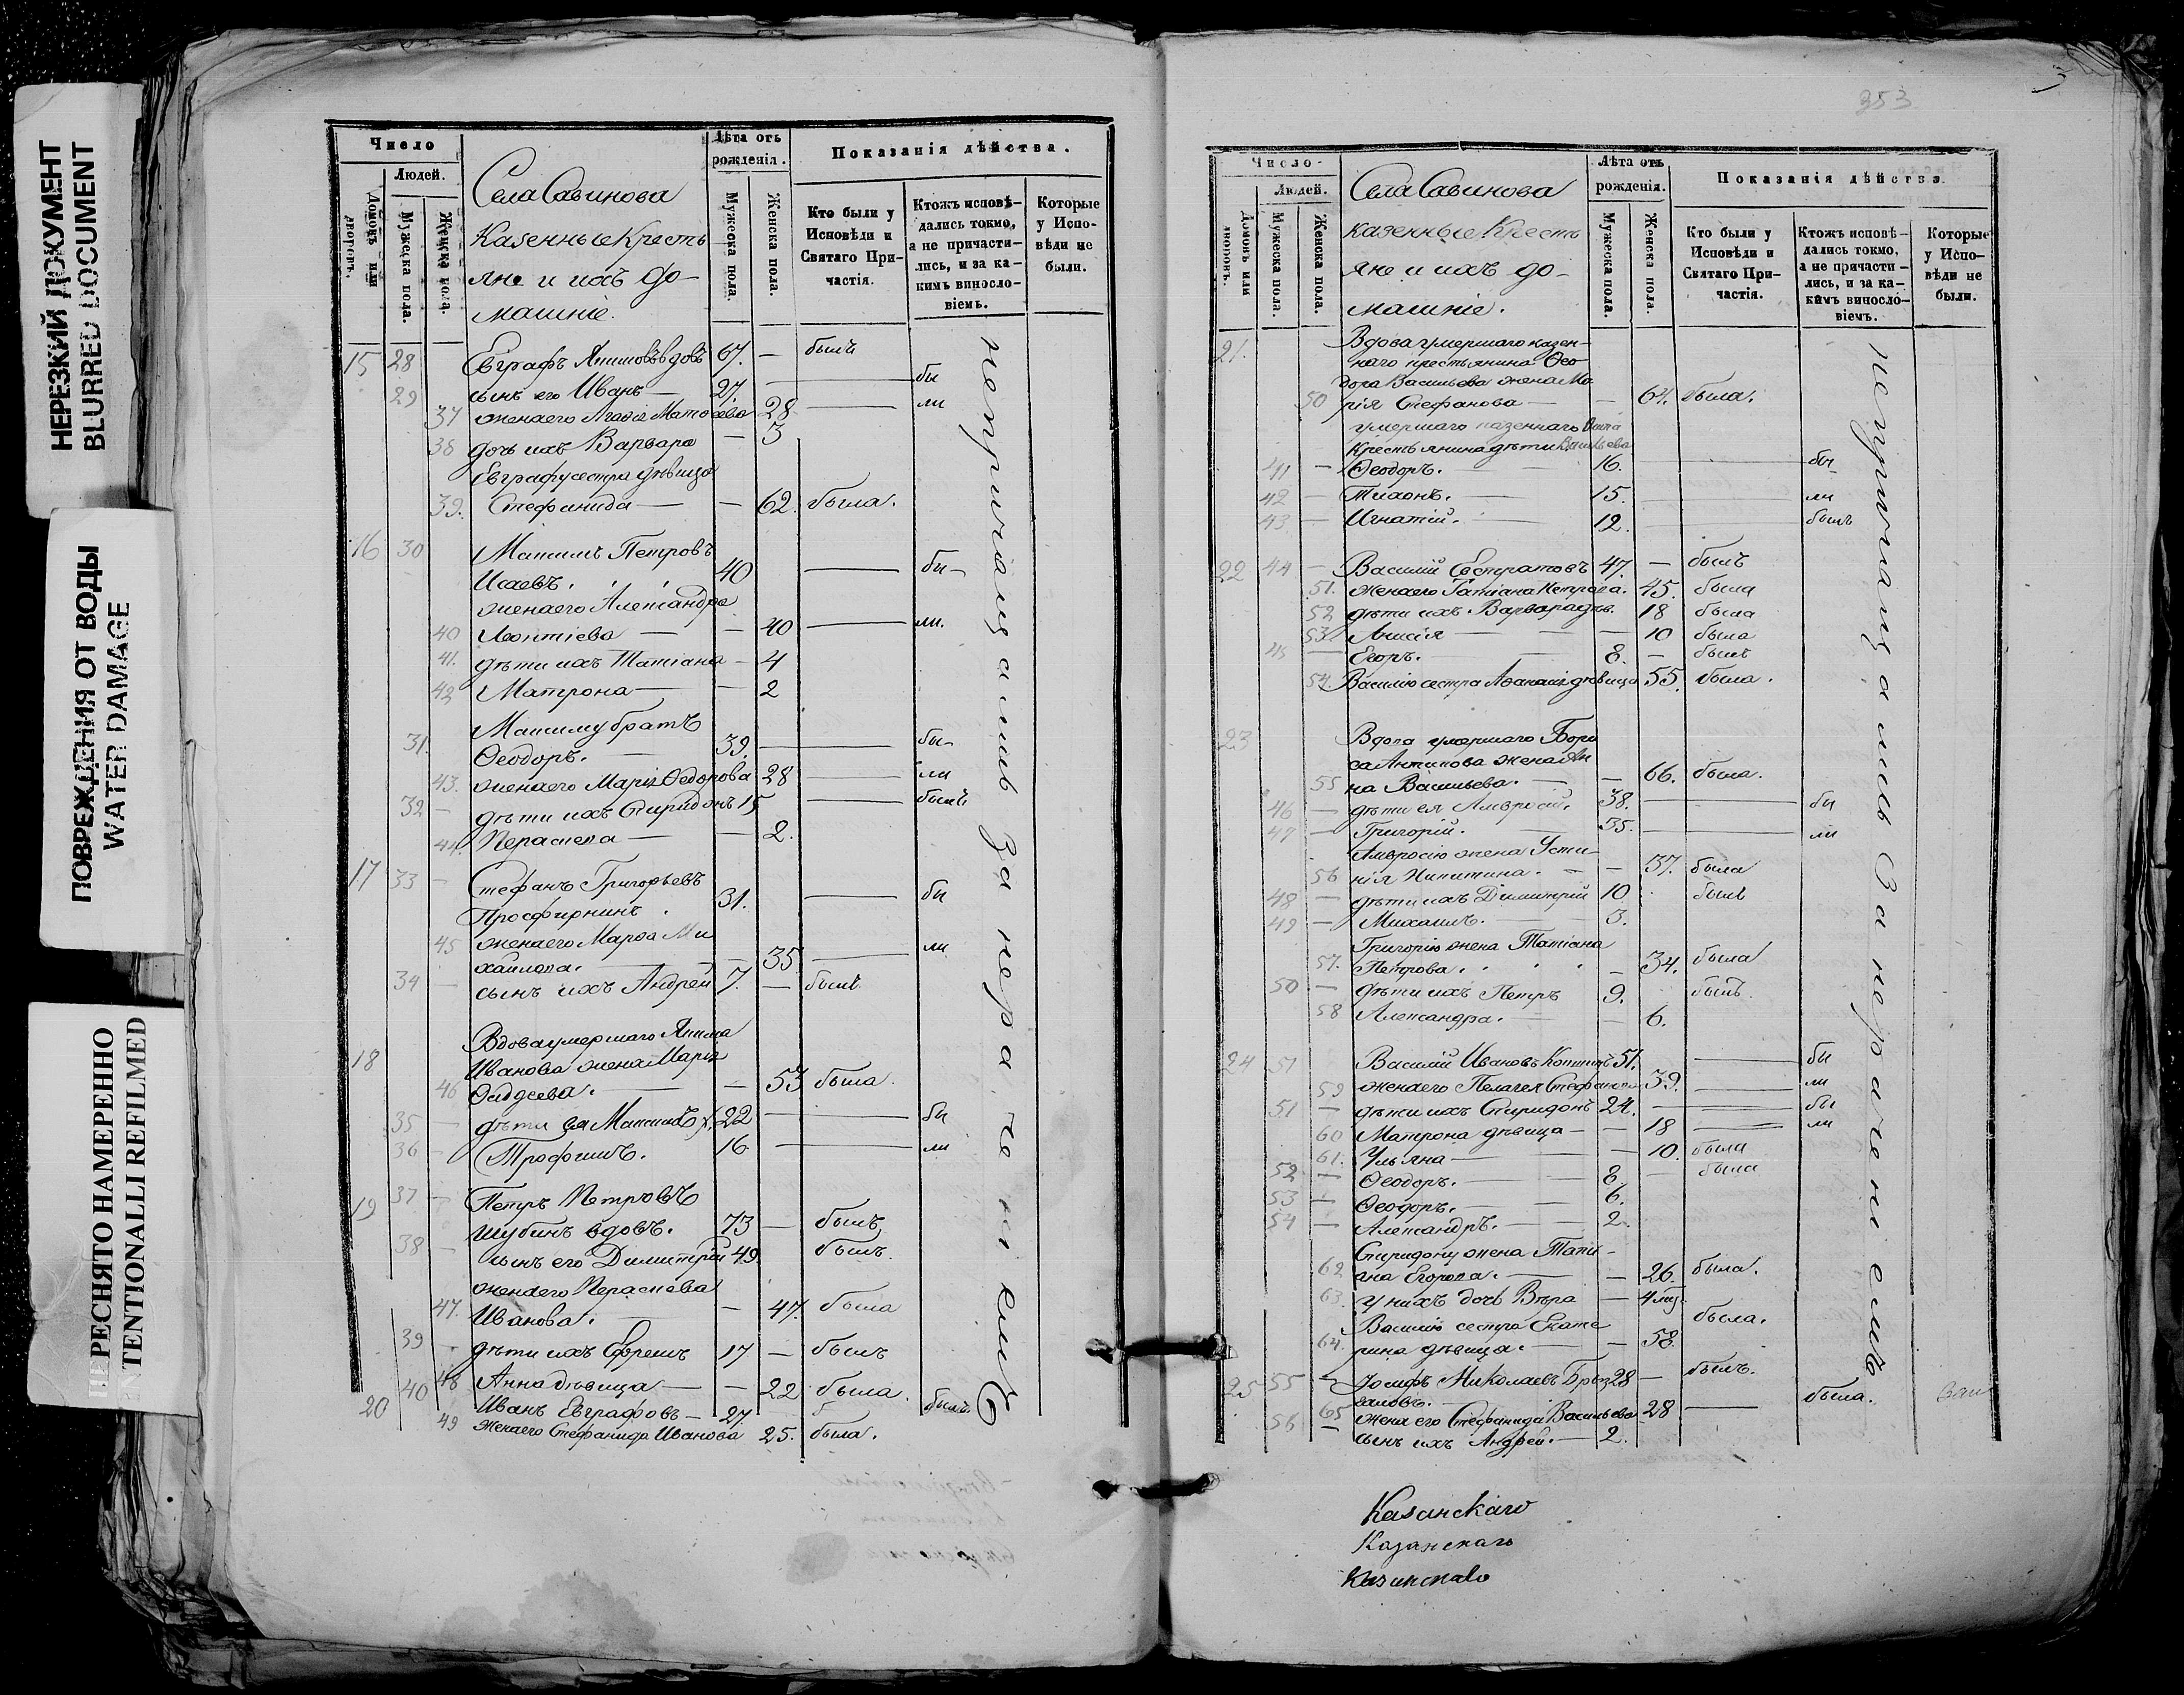 НЕРЕЗКИЙ ДОКУМЕНТ
BLURRED DOCUMENT
ПОВРЕЖДЕНИЯ ОТ ВОДЫ
WATER DAMAGE
РЕСНЯТО НАМЕРЕННО
TENTIONALLI REFILMED
Число
Людей.
Домовъ или дворовъ.
Мужеска пола.
Женска пола.
Села Савинова
Казенные Кресть
яне и ихъ до-
машніе.
Лѣта отъ рожденія.
Мужеска пола.
Женска пола.
Показанія дѣйства.
Кто были у Исповѣди и Святаго При-частія.
Ктожъ исповѣ-дались токмо, а не причасти-лись, и за ка-кимъ винословіемъ.
Которые у Испо-вѣди не были.
15 28 Евграфъ Якимовъ вдовъ 67. — былъ
29 сынъ его Иванъ — 27. — бы
37 жена его Матѳеева 28 — ли
38 дочь ихъ Варвара — 3
Евграфу сестра дѣвица
39. Стефанида — — 62. была.
16 30 Максимъ Петровъ
Исаевъ. 40 — бы-
жена его Александра
40 Леонтіева — — 40 — ли.
41. дѣти ихъ Татіана — 4
42 Матрона — — 2
Максиму братъ
31. Ѳеодоръ. — 39. — бы-
43. жена его Марія Ѳедорова 28 — ли
32 — дѣти ихъ Спиридонъ 15 — былъ
44. Параскева — — 2.
17 33 — Стефанъ Григорьевъ
Просфирнинъ. 31. — бы
45 жена его Марѳа Ми
хайлова. — 35 — ли
34 — сынъ ихъ Андрей 7. — былъ
18 Вдова умершаго Якима
Иванова жена Марія
46 Ѳадѣева. — — 53 была.
35 — дѣти ея Максимъ 22 — бы
36 — Трофимъ. 16 — ли
19 37 — Петръ Петровъ
Шубинъ вдовъ. 73 — былъ
38 — сынъ его Димитрій 49. былъ.
жена его Параскева
47. Иванова. — 47. была
39 — дѣти ихъ Ефремъ 17 — былъ
48 Анна дѣвица — — 22 была.
20 40 Иванъ Евграфовъ — 27. былъ.
49 Жена его Стефанида Иванова 25. была.
не причащались За нера-че ні емъ
353
Число
Людей.
Домовъ или дворовъ.
Мужеска пола.
Женска пола.
Села Савинова
казенные Кресть
яне и ихъ до-
машніе.
Лѣта отъ рожденія.
Мужеска пола.
Женска пола.
Показанія дѣйства
Кто были у Исповѣди и Святаго При-частія.
Ктожъ исповѣ-дались токмо, а не причасти-лись, и за ка-кимъ винословіемъ.
Которые у Испо-вѣди не были.
21. Вдова умершаго казен-
наго крестьянина Ѳео-
дора Васильева жена Ма
50 рія Стефанова — — 64. была.
умершаго казеннаго
крестьянина дѣти Васильева
41 — Ѳеодоръ. — 16. — бы
42 — Тихонъ. — 15. — ли
43 — Игнатій. — 12. — былъ
22 44 — Василій Евстратовъ 47. — былъ
51. жена его Татіана Петрова. 45. была
52 дѣти ихъ Варвара дѣв. 18 была
53. Анисія — — 10 была
45 — Егоръ. 8. — былъ
54. Василію сестра Аѳанасія дѣвица 55. была.
23 Вдова умершаго Бори
са Антипова жена Ан
55 на Васильева. — — 66. была.
46 — дѣти ея Амвросій. 38. — бы
47 — Григорій. 35. — ли
Амвросію жена Усти-
56 нія Никитина. — — 37. была
48 — дѣти ихъ Димитрій 10 былъ
49 — Михаилъ. — 3.
Григорію жена Татіана
57. Петрова. — 34. была
50 — дѣти ихъ Петръ 9. былъ.
58 Александра. — — 6.
24 51 Василій Ивановъ 51. — бы
59 жена его Пелагея Стефанова 39. — ли
51 — дѣти ихъ Спиридонъ 24. — бы
60 Матрона дѣвица — — 18 — ли
61. Ульяна — — 10. была
52 — Ѳеодоръ. — 8. — была
53 — Ѳеодоръ. — 6.
54 — Александръ. — 2.
Спиридону жена Тати-
62 ана Егорова. — — 26. была.
63. у нихъ дочь Вѣра — 4 мц.
Василію сестра Екате была.
64. рина дѣвица. — — 58.
25 55 Іосифъ Николаевъ 28 — былъ.
65 жена его Стефанида Васильева 28 — была.
56 — сынъ ихъ Андрей. — 2.
не причащались За нерачені емъ
Казанскаго
Казанскаго
Казанскаго